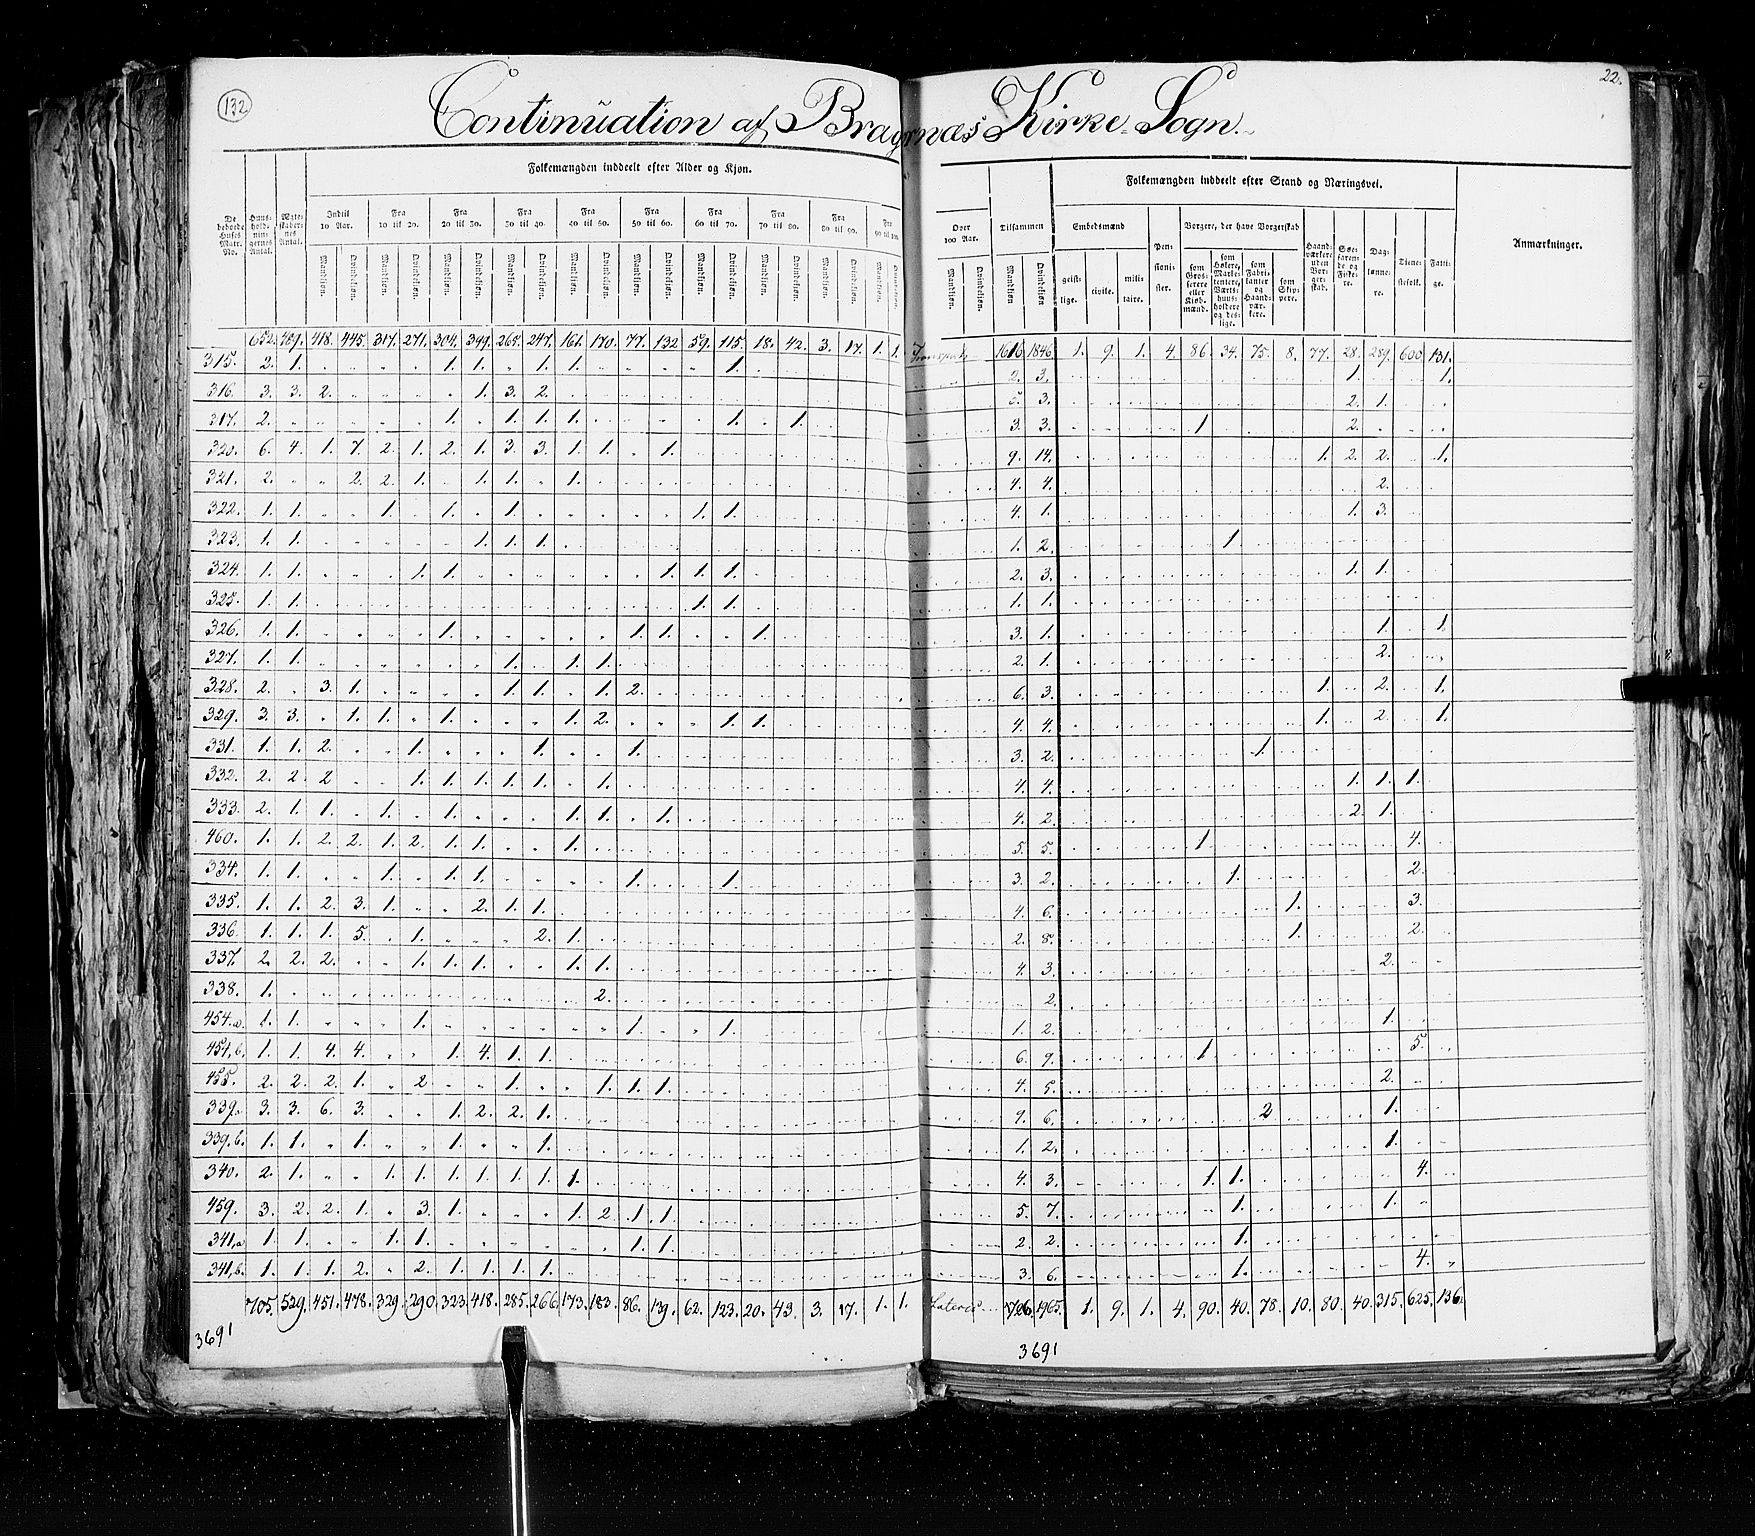 132
22.
Continuation af Bragernæs Kirke-Sogn.
Folkemængden inddeelt efter Alder og Kjøn.
Folkemængden inddeelt efter Stand og Næringsvei.
De beboede Huses Matr. No.
Huus-hold-nin-gernes Antal.
Ægte-skaber-nes Antal.
Indtil 10 Aar. Fra 10 til 20. Fra 20 til 30. Fra 30 til 40. Fra 40 til 50. Fra 50 til 60. Fra 60 til 70. Fra 70 til 80. Fra 80 til 90. Fra 90 til 100. Over 100 Aar. Tilsammen
Mandkjøn Qvindekjøn
Embedsmænd
geist-lige. civile. mili-taire.
Pen-sioni-ster.
Borgere, der have Borgerskab
som Gros-serere eller Kiøb-mænd.
som Høkere, Marke-tentere, Værts-huus-holdere og des-lige.
som Fabri-kanter og Haand-vær-kere.
som Skip-pere.
Haand-værkere uden Bor-ger-skab.
Søe-farende og Fiske-re.
Dag-lønne-re.
Tiene-stefolk.
Fatti-ge.
Anmærkninger.
652. 489. 418. 445. 317. 271. 304. 399. 265. 247. 161. 170. 77. 132 59. 115. 18. 42. 3. 17. 1. 1. Transport 1616 1846 1. 9. 1. 4. 86. 34. 75. 8. 77. 28. 289. 600 131.
315. 2. 1. 1. 1. 1. 1. 1. 2. 3. 1. 1.
316. 3. 3. 2. 1. 3. 2. 5. 3. 2. 1.
317. 2. 1. 1. 1. 1. 1. 1. 3. 3. 1 2.
320. 6. 4. 1. 7. 2. 1. 2. 1. 3. 3. 1. 1. 1. 9. 14. 1. 2. 2. 1.
321. 2. 2. 2. 1. 1. 1. 1. 4. 4. 2.
322. 1. 1. 1. 1. 1. 1. 1. 4. 1. 1. 3.
323. 1. 1. 1. 1. 1. 1. 2. 1.
324. 1. 1. 1. 1. 1. 1. 1. 2. 3. 1. 1.
325. 1. 1. 1. 1. 1. 1.
326. 1. 1. 1. 1. 1. 1. 3. 1. 1. 1.
327. 1. 1. 1. 1. 1. 2. 1. 2.
328. 2. 3. 1. 1. 1. 1. 2. 6. 3. 1. 2. 1.
329. 3. 3. 1. 1. 1. 1. 2. 1. 1. 4. 4. 1. 2. 1.
331. 1. 1. 2. 1. 1. 1. 3. 2. 1.
332. 2. 2 2 1. 1. 1. 1. 1. 1. 4. 4. 1. 1. 1.
333. 2. 1. 1. 1. 1. 1. 1. 1. 4. 2. 2. 1.
460. 1. 1. 2. 2. 1. 2. 1. 1. 1. 5. 5. 1 4.
334. 1. 1. 1. 1. 1. 1. 1. 3. 2. 1. 2.
335. 1. 1. 2. 3. 1. 2. 1. 1. 4. 6. 1. 3.
336. 1. 1. 1. 5. 1. 2. 1. 2. 8. 1. 2.
337. 2. 2. 2. 1. 1. 1. 1. 1. 4. 3. 2.
338. 1. 2. 2.
454.a. 1. 1. 1. 1. 1. 1. 2. 1.
454,b. 1. 1. 4. 4. 1. 4. 1. 1. 6. 9. 1 5.
455. 2. 2. 2. 1. 2. 1. 1. 1. 1. 4. 5. 2.
339.a 3. 3. 6. 3. 1. 2. 2. 1. 9. 6. 2 1.
339.b. 1. 1. 1. 1. 1. 1. 2. 1.
340. 2. 1. 1. 1. 1. 1. 1. 1. 1. 4. 3. 1. 1. 4.
459. 3. 2. 2. 1. 3. 1. 1. 2. 1. 1. 5. 7. 1. 1.
341,a 1. 1. 1. 1. 1. 1. 2. 2. 1.
341,b. 1. 1. 1. 2. 2. 1. 1. 1. 1. 3. 6. 1. 4.
705. 529. 451. 478. 329. 290. 323. 418. 285. 266. 173. 183. 86. 139. 62. 123. 20. 43. 3. 17. 1. 1. Lateris 1965. 1. 9. 1. 4. 90. 40. 78. 10. 80. 40. 315. 625. 136.
3691
3691